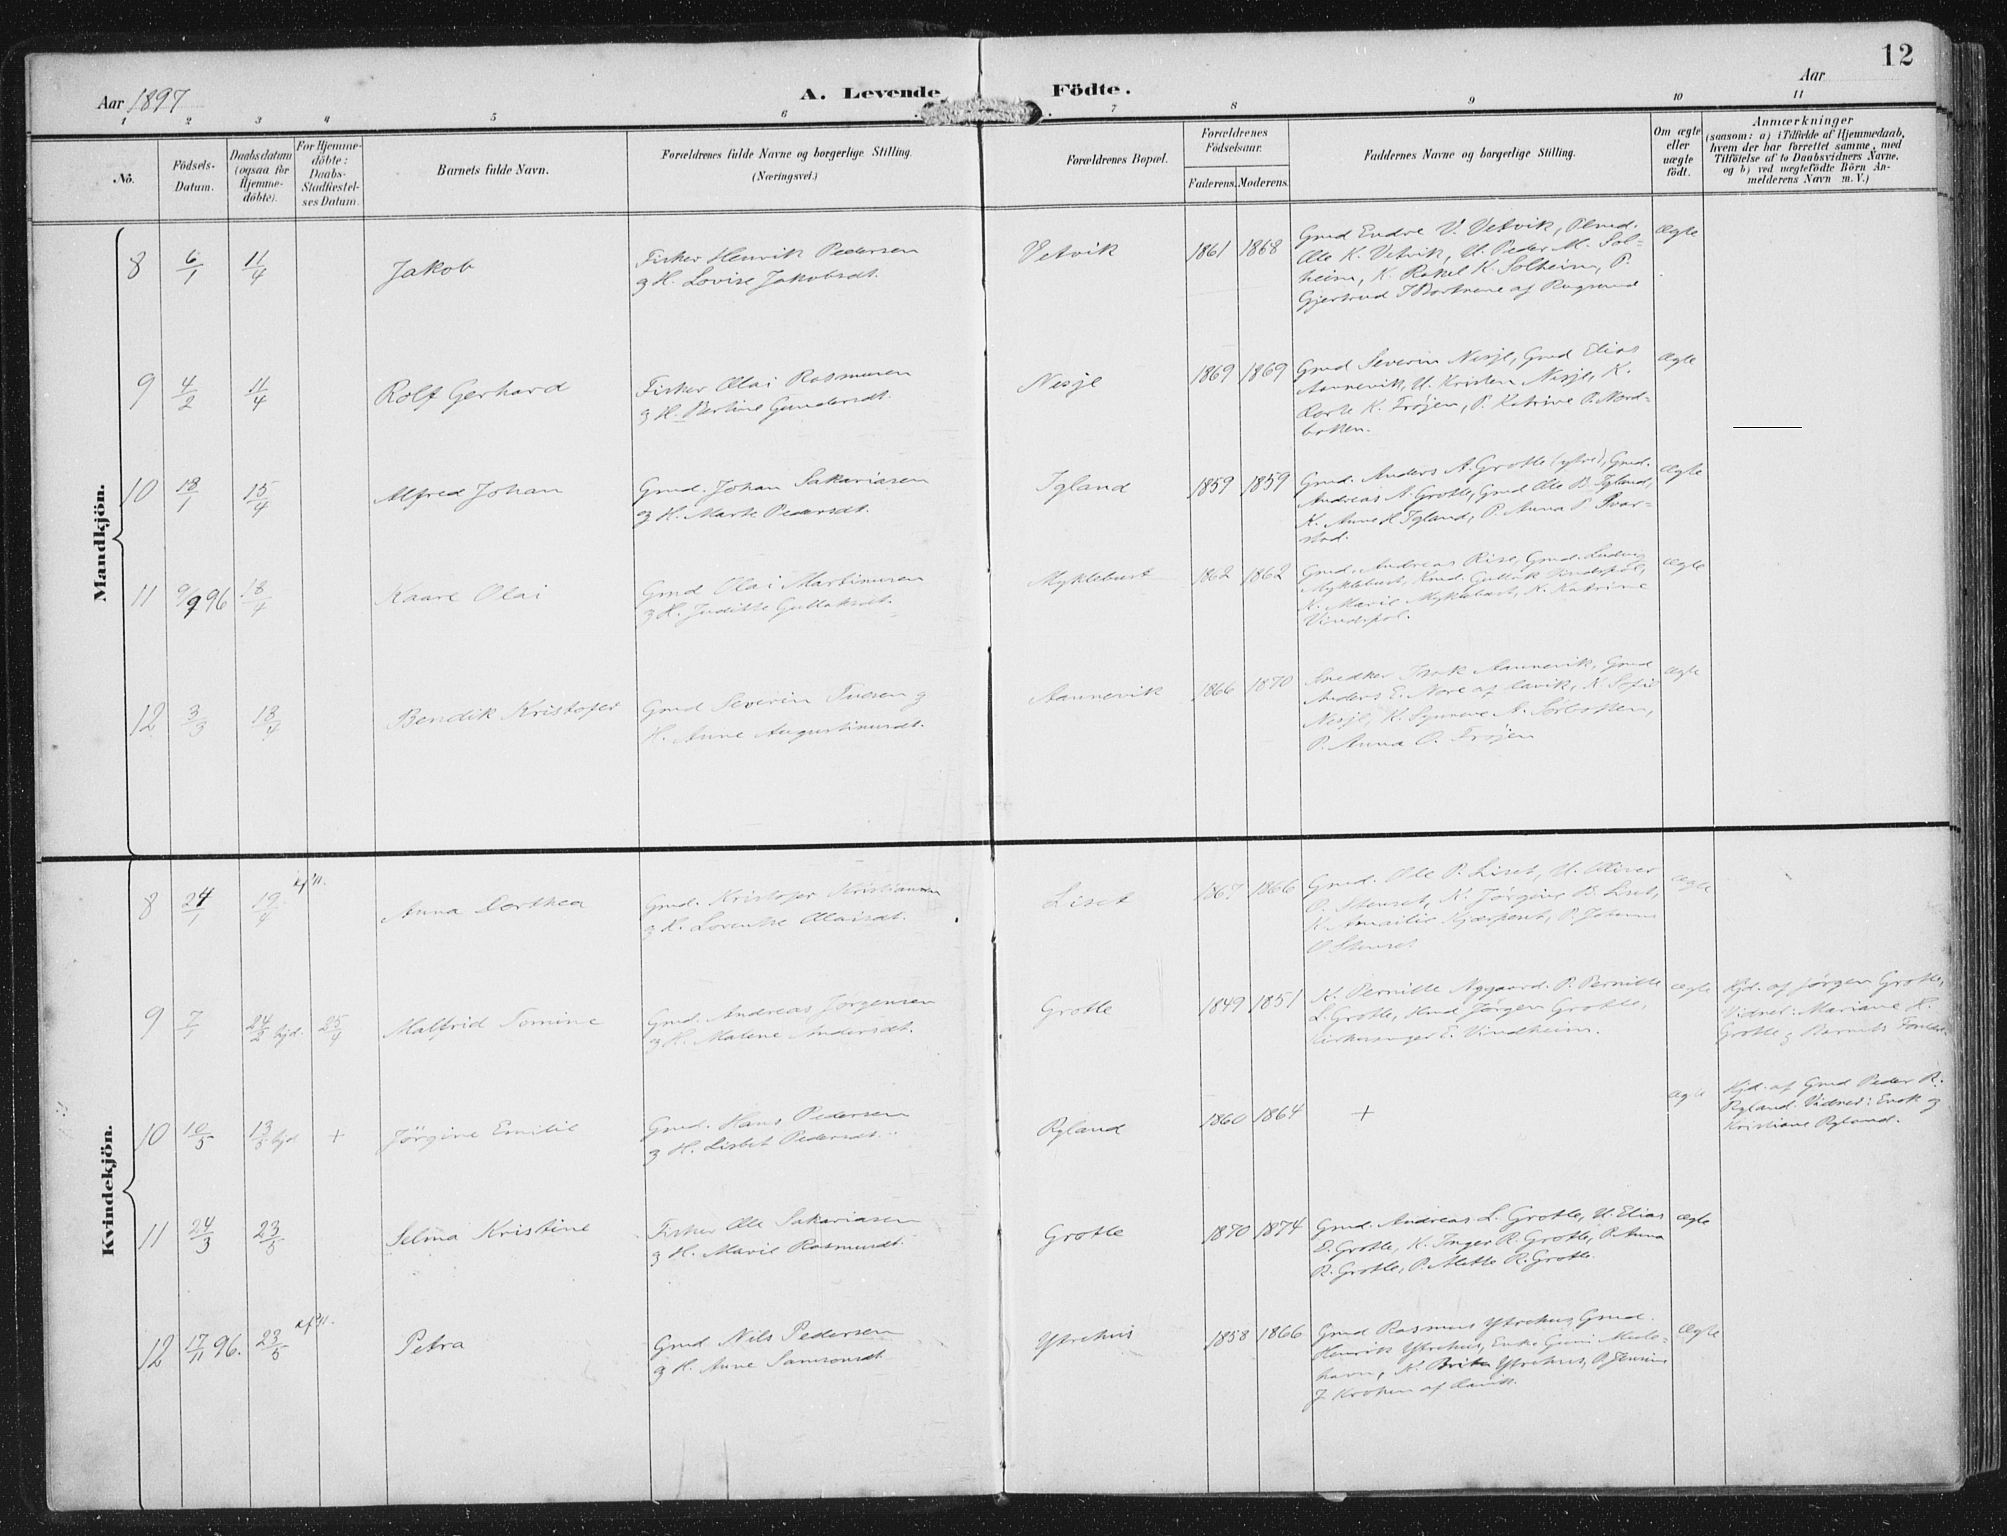 12
Aar 1897
A. Levende
Födte.
Aar
1 2 3 4 5 6 7 8 9 10 11
No.
Födsels-
Datum.
Daabsdatum
(ogsaa for
Hjemme-
döbte).
For Hjemme-
döbte:
Daabs-
Stadfæstel-
ses Datum.
Barnets fulde Navn.
Forældrenes fulde Navne og borgerlige Stilling.
(Næringsvei.)
Forældrenes Bopæl.
Forældrenes
Födselsaar.
Faderens. Moderens.
Faddernes Navne og borgerlige Stilling.
Om ægte
eller
uægte
födt.
Anmærkninger
(saasom: a) i Tilfælde af Hjemmedaab,
hvem der har forrettet samme, med
Tilföielse af to Daabsvidners Navne,
og b) ved uægtefödte Börn An-
melderens Navn m. V.)
Mandkjön.
8 6/1 11/4 Jakob
Fisker Henrik Pedersen
g H. Lovise Jakobsdt.
Vetvik 1861 1868
Gmd Endre V. Vetvik, Plmd.
Ole K. Vetvik, U. Peder M. Sol=
heim, K. Rakel K. Solheim, P.
Gjertrud J Bortnene af Rugsund
Ægte
9 4/2 11/4 Rolf Gerhard
Fisker Olai Rasmusen
g H. Bertine Gundersdt.
Nesje 1869 1869
Gmd Severin Nesje, Gmd Elias
Aannevik, U. Kristen Nesje, K.
Dorte K. Frøjen, P. Katrine P. Nord=
botten.
Ægte
10 18/1 15/4 Alfred Johan
Gmd. Johan Sakariasen
g H. Marte Pedersdt.
Igland 1859 1859
Gmd. Anders A. Grotle (ytre), Gmd.
Andreas A. Grotle, Gmd Ole B. Igland,
K. Anne H. Igland, P. Anna P. Svar=
stad.
Ægte
11 9/9 96 18/4 Kaare Olai
Gmd Olai Martinusen
g H. Juditte Gullaksdt.
Myklebust 1862 1862
Gmd. Andreas Rise, Gmd. Ludvig
Myklebust, Kmd. Gullak Vindspol,
K. Marie Myklebust, K. Katrine
Vindspol.
Ægte
12 3/3 18/4 Bendik Kristofer
Gmd Severin Iversen g
H. Anne Augustinusdt.
Aannevik 1866 1870
Snedker Isak Aannevik, Gmd
Anders E. Nore af Davik, K. Sofie
Nesje, K. Synneve A. Sørbotten,
P. Anna O. Frøjen
Ægte
Kvindekjön.
8 24/1 19/4 Anna Dorthea
Gmd. Kristofer Kristiansen
g H. Lorentse Olaisdt.
Liset 1867 1866
Gmd. Ole P. Liset, U. Oliver
O. Stenset, K. Jørgine B. Liset,
K. Amailie Kjærpeset, P. Johanne
O Stenset
Ægte
9 7/1 24/2 hjd. 25/4 Malfrid Tomine
Gmd. Andreas Jørgensen
g H. Malene Andersdt.
Grotle 1849 1851
K. Pernille Nygaard. P. Pernille
L. Grotle, Kmd Jørgen Grotle,
Kirkesanger E. Vindheim.
Ægte
Hjd. af Jørgen Grotle,
Vidner: Mariane H.
Grotle g Barnets Forældr.
10 10/5 13/5 hjd + Jørgine Emilie
Gmd. Hans Pedersen
g H. Lisbet Pedersdt.
Ryland 1860 1864 +
Ægte
Hjd. af Gmd Peder R.
Ryland. Vidner: Enok g
Kristiane Ryland.
11 24/3 23/5 Selma Kristine
Fisker Ole Sakariasen
g H. Marie Rasmusdt.
Grotle 1870 1874
Gmd. Andreas L. Grotle, U. Elias
E. Grotle, K. Inger R. Grotle, P. Anna
R. Grotle, P. Mette R. Grotle.
Ægte
12 17/11 96. 23/5 Petra
Gmd Nils Pedersen
g H. Anne Samsonsdt.
Ytrehus 1858 1866
Gmd Rasmus Ytrehus, Gmd.
Henrik Ytrehus, Enke Guni Mule=
havn, K. Brite Ytrehus, P. Jensine
J. Krohn af Davik.
Ægte